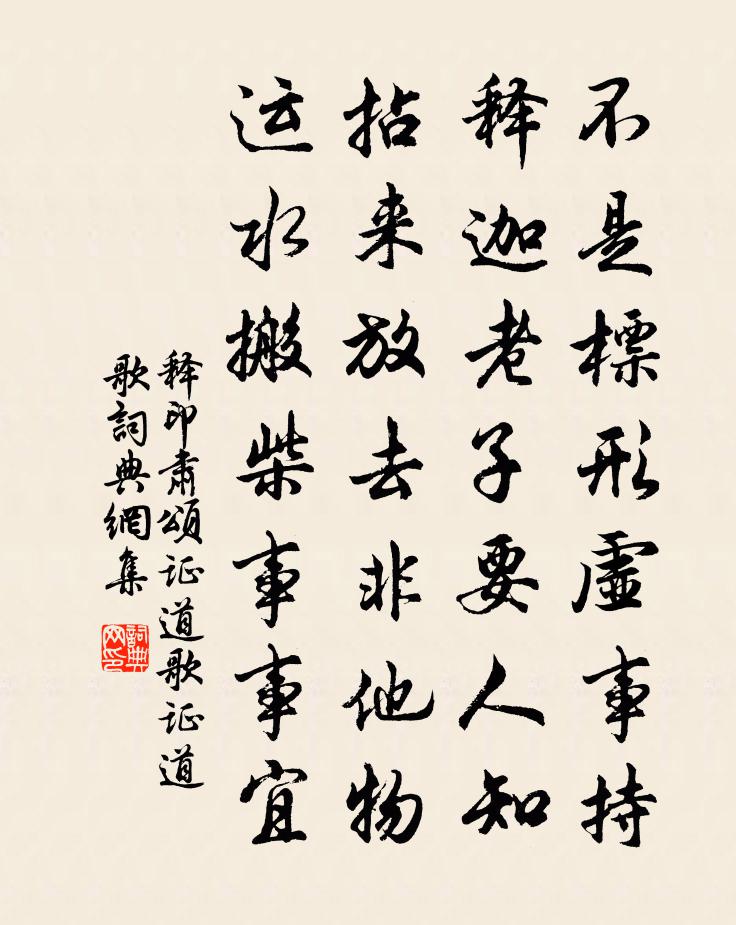 不是標形虛事持
释迦老子要人知
拈来放去非他物
运水搬柴事事宜
释印肃頌证道歌证道
歌詞典網集
詞典网印